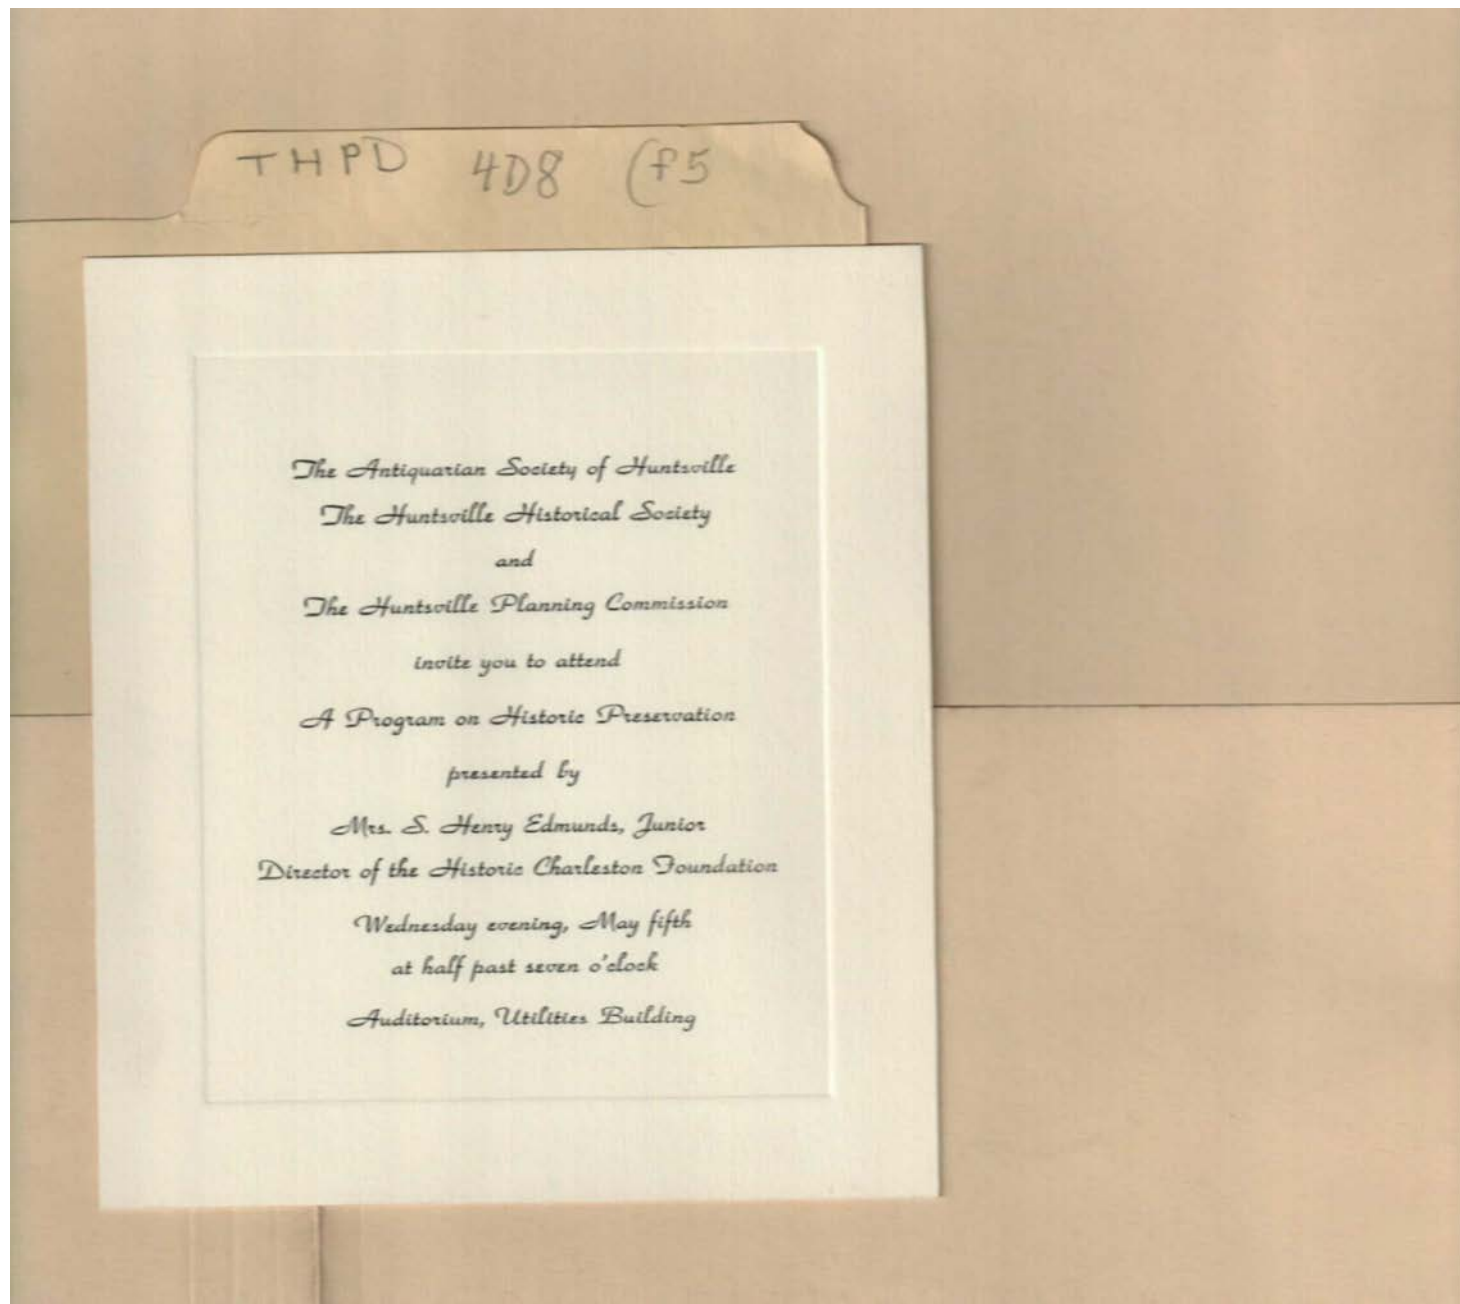 THPD 4D8 (f5
The Antiquarian Society of Huntsville
The Huntsville Historical Society
and
The Huntsville Planning Commission
invite you to attend
A Program on Historic Preservation
presented by
Mrs. S. Henry Edmunds, Junior
Director of the Historic Charleston Foundation
Wednesday evening, May fifth
at half past seven o'clock
Auditorium, Utilities Building